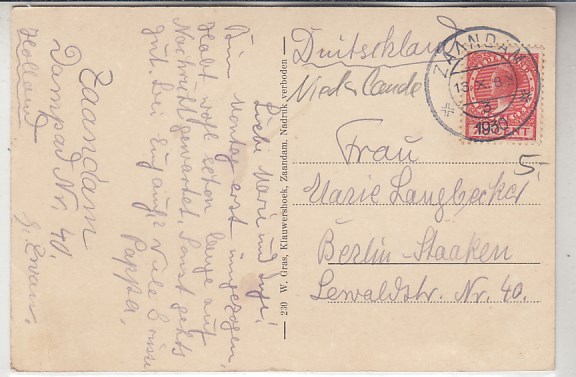 Zaandam
Dampad Nr. 40.
Holland
Liebe Marie und Inge!
Bin Montag erst umgezogen,
Habt wohl schon lange auf
Nachricht gewartet. Sonst gehts
gut. Bei Euch auch? Viele Grüsse
Pappa.
230 W. Gras, Klauwershoek, Zaandam. Nadruk verboden
Duitschland
Niederlande
ZAANDAM
1930
CENT
5-
Frau
Marie Langbecker
Berlin-Staaken
Lewaldstr. Nr. 40.